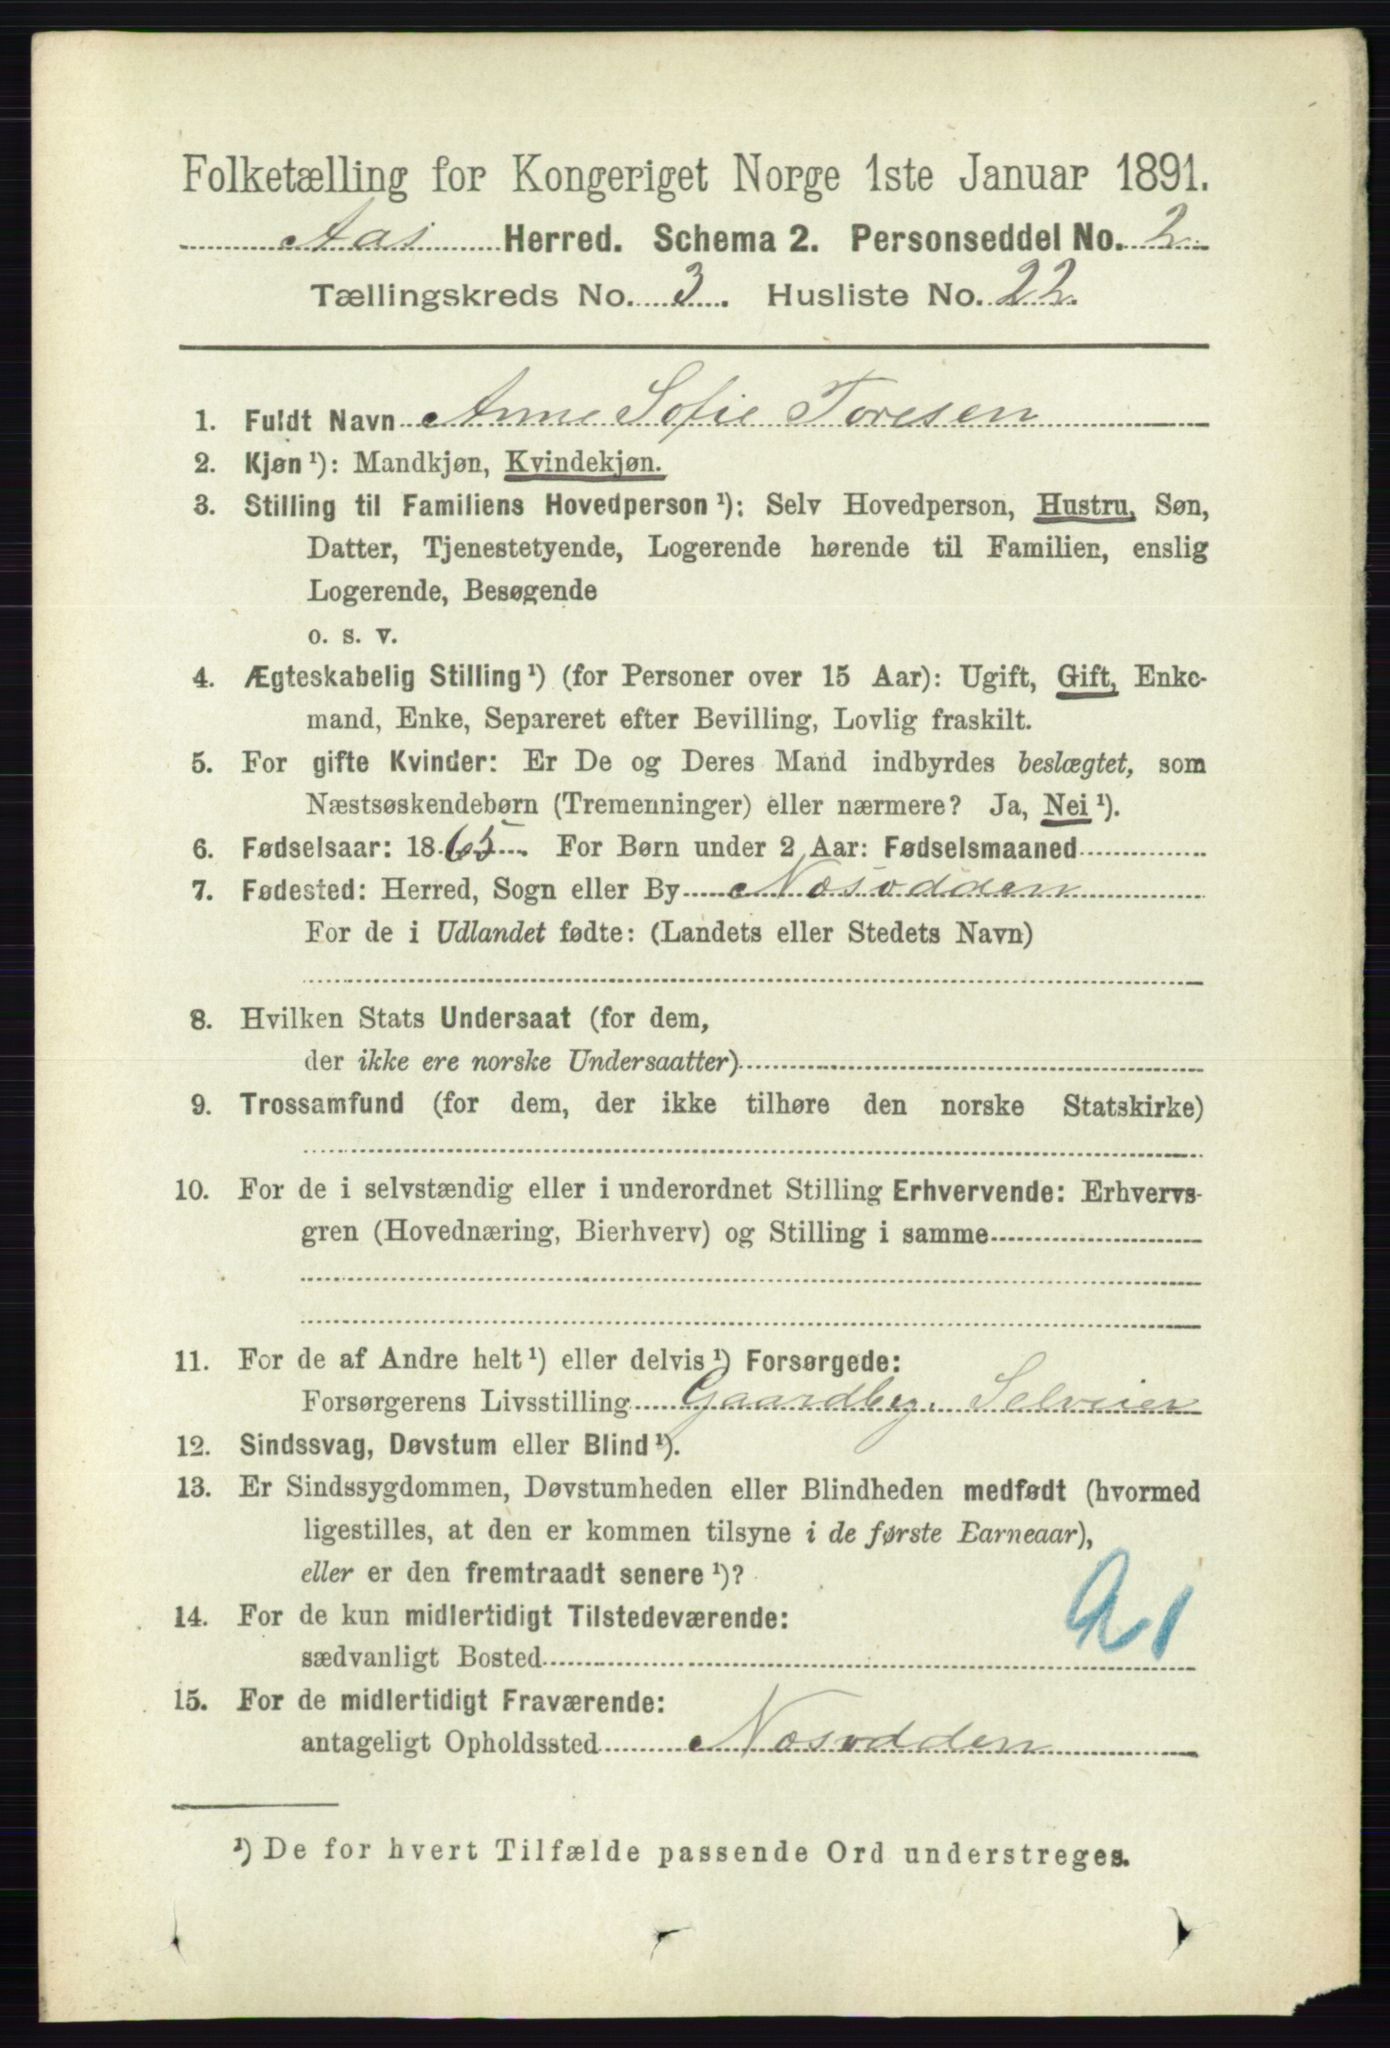 Folketælling for Kongeriget Norge 1ste Januar 1891.
Aas Herred. Schema 2. Personseddel No. 2
Tællingskreds No. 3. Husliste No. 22
1. Fuldt Navn Anne Sofie Toresen
2. Kjøn¹): Mandkjøn, Kvindekjøn.
3. Stilling til Familiens Hovedperson¹): Selv Hovedperson, Hustru, Søn,
Datter, Tjenestetyende, Logerende hørende til Familien, enslig
Logerende, Besøgende
o. s. v.
4. Ægteskabelig Stilling¹) (for Personer over 15 Aar): Ugift, Gift, Enke-
mand, Enke, Separeret efter Bevilling, Lovlig fraskilt.
5. For gifte Kvinder: Er De og Deres Mand indbyrdes beslægtet, som
Næstsøskendebørn (Tremenninger) eller nærmere? Ja, Nei¹).
6. Fødselsaar: 1865. For Børn under 2 Aar: Fødselsmaaned
7. Fødested: Herred, Sogn eller By Næsodden
For de i Udlandet fødte: (Landets eller Stedets Navn)
8. Hvilken Stats Undersaat (for dem,
der ikke ere norske Undersaatter)
9. Trossamfund (for dem, der ikke tilhøre den norske Statskirke)
10. For de i selvstændig eller i underordnet Stilling Erhvervende: Erhvervs-
gren (Hovednæring, Bierhverv) og Stilling i samme
11. For de af Andre helt¹) eller delvis¹) Forsørgede:
Forsørgerens Livsstilling Gaardbr. Selveier
12. Sindssvag, Døvstum eller Blind¹).
13. Er Sindssygdommen, Døvstumheden eller Blindheden medfødt (hvormed
ligestilles, at den er kommen tilsyne i de første Barneaar),
eller er den fremtraadt senere¹)?
14. For de kun midlertidigt Tilstedeværende:
sædvanligt Bosted
15. For de midlertidigt Fraværende:
antageligt Opholdssted Næsodden
¹) De for hvert Tilfælde passende Ord understreges.